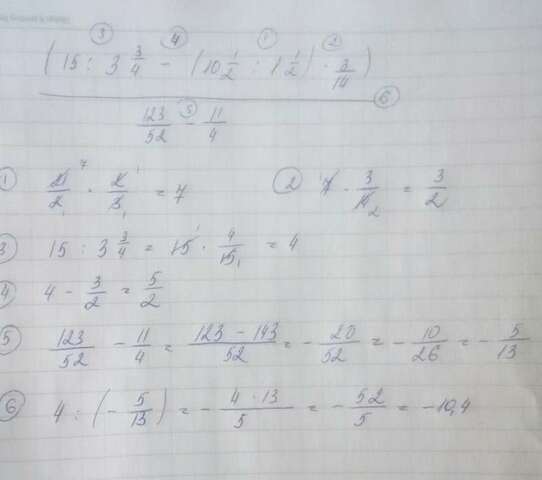 (15 : 3 3/4 - (10 1/2 : 1 1/2) · 3/14)
123/52 - 11/4
① 21/2 · 2/3 = 7
② 7 · 3/14 = 3/2
③ 15 : 3 3/4 = 15 · 4/15 = 4
④ 4 - 3/2 = 5/2
⑤ 123/52 - 11/4 = 123 - 143/52 = - 20/52 = - 10/26 = - 5/13
⑥ 4 : (- 5/13) = - 4 · 13/5 = - 52/5 = -10,4